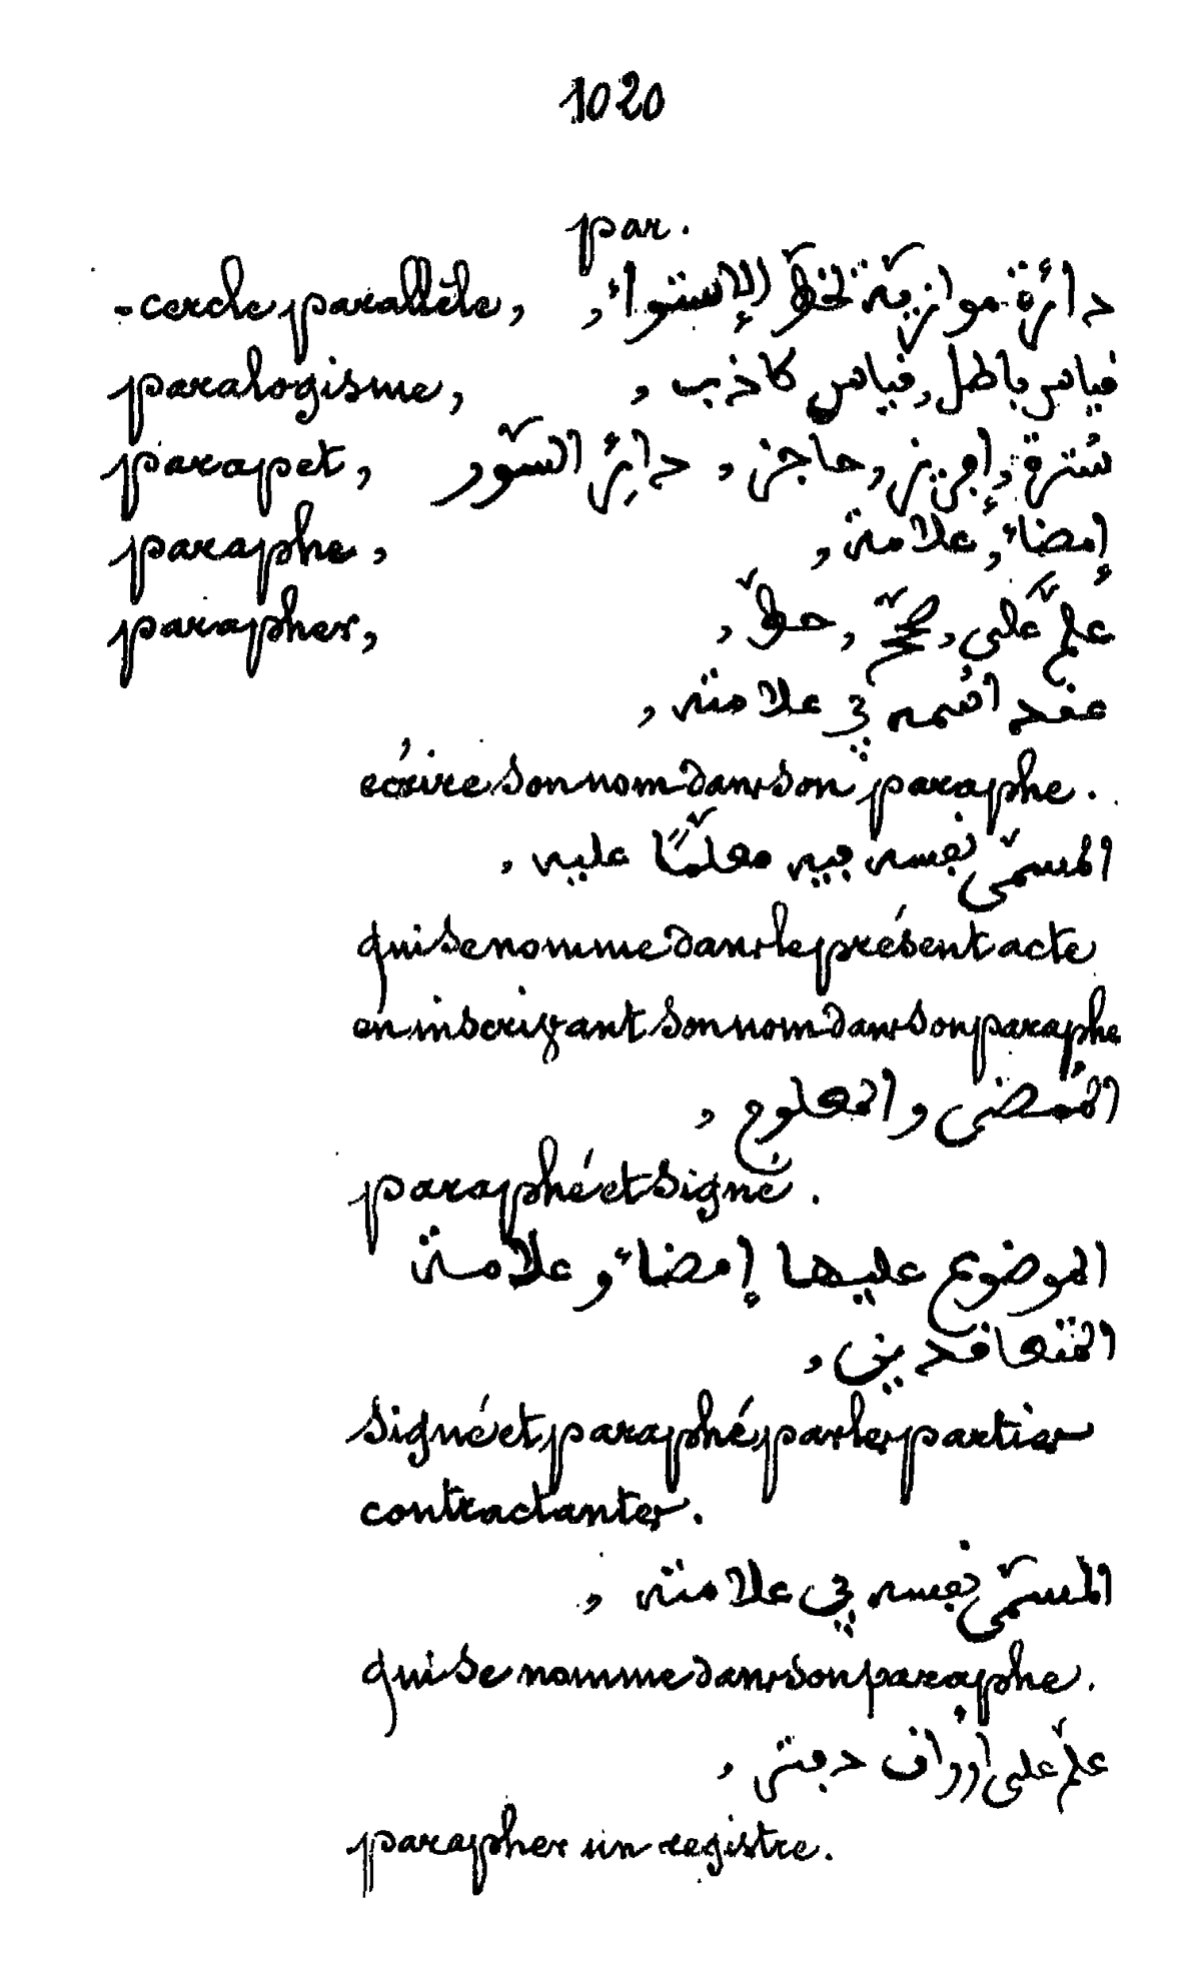 1020
par.
- cercle parallèle, دائرة موازيّة لخطّ الإستواء,
paralogisme, قياس باطل, قياس كاذب,
parapet, سُترة, إفريز, حاجز, دائِر السّور
paraphe, إمضاء, علامة,
parapher, علّم على, صحّح, حطّ,
عقد اسُمه في علامته,
écrire son nom dans son paraphe.
المسمّى نفسه فيه معلّمًا عليه,
qui se nomme dans le présent acte
en inscrivant son nom dans son paraphe
المُمضى والمعلوم,
paraphé et signé.
الموضوع عليها إمضاء وعلامة
المتعاقدين,
signé et paraphé par les parties
contractantes.
المسمّى نفسه في علامته,
qui se nomme dans son paraphe.
علّم على أوراق دفتر,
parapher un registre.